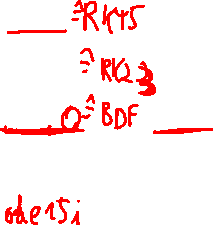 ≙RK45
≙RK23
≙BDF
ode15i